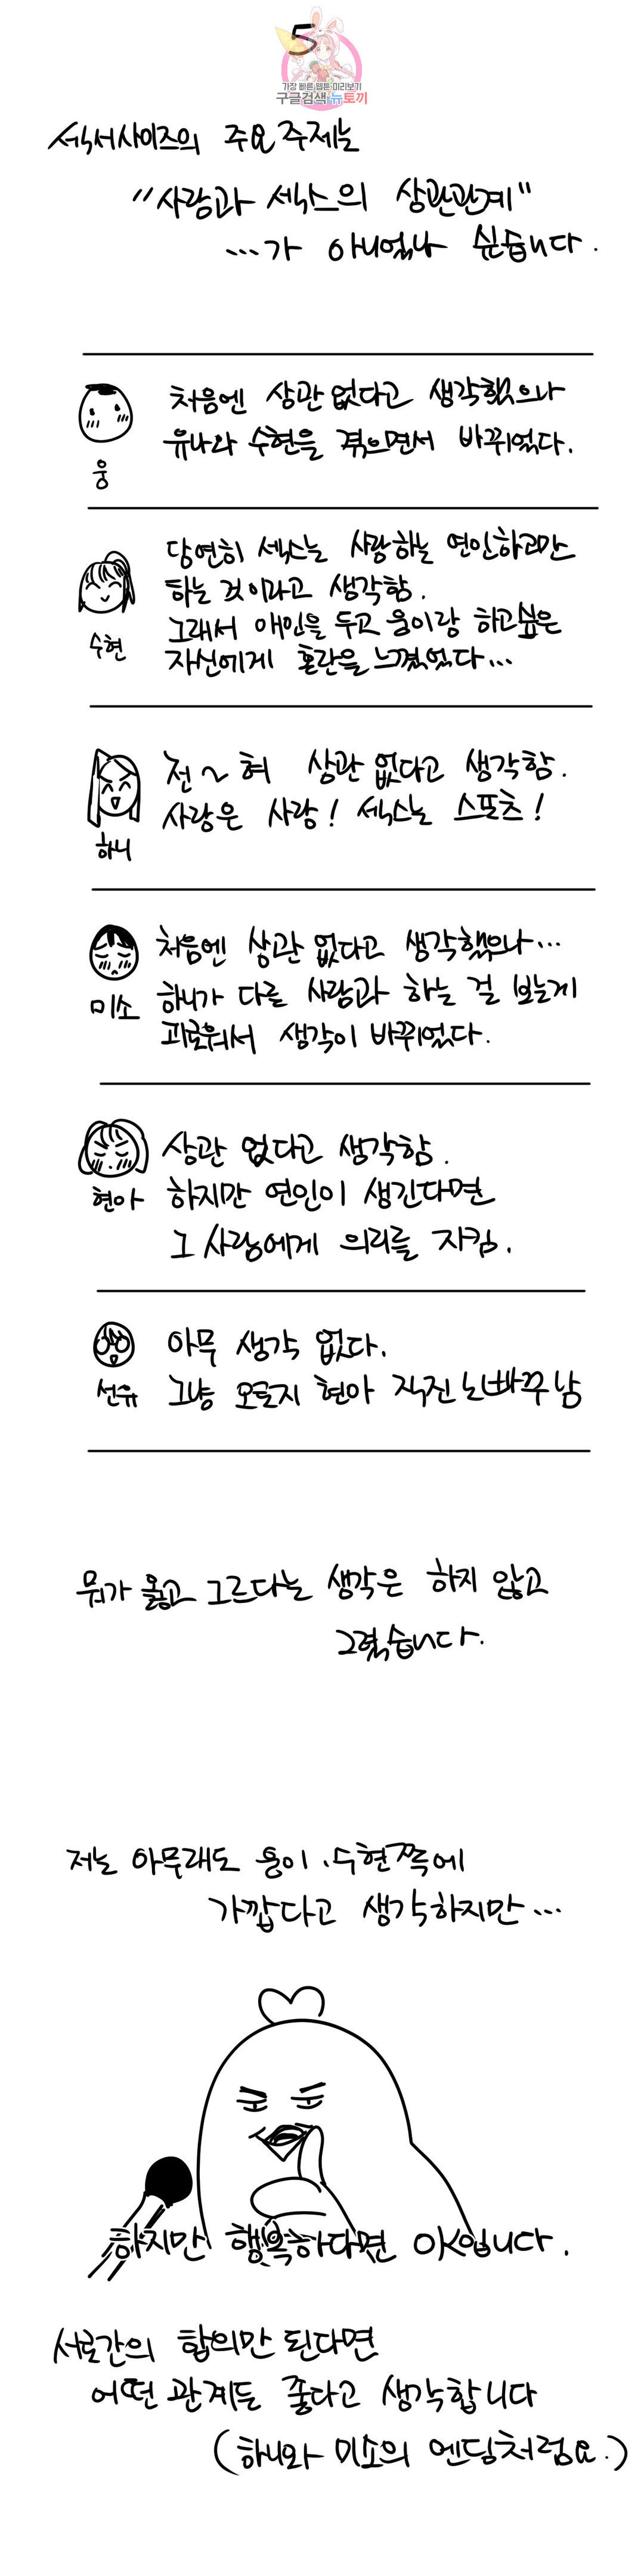 5
가장 빠른 웹툰 미리보기
구글검색 뉴토끼
섹서사이즈의 주요 주제는
"사랑과 섹스의 상관관계"
...가 아니었나 싶습니다.
처음엔 상관 없다고 생각했으나
유나와 수현을 겪으면서 바뀌었다.
웅
당연히 섹스는 사랑하는 연인하고만
하는 것이라고 생각함.
그래서 애인을 두고 웅이랑 하고싶은
자신에게 혼란을 느꼈었다...
수현
전~혀 상관 없다고 생각함.
사랑은 사랑! 섹스는 스포츠!
하니
처음엔 상관 없다고 생각했으나...
하니가 다른 사람과 하는 걸 보는게
괴로워서 생각이 바뀌었다.
미소
상관 없다고 생각함.
하지만 연인이 생긴다면
그 사람에게 의리를 지킴.
현아
아무 생각 없다.
그냥 오로지 현아 직진 노빠꾸남
선유
뭐가 옳고 그르다는 생각은 하지 않고
그렸습니다.
저는 아무래도 웅이, 수현쪽에
가깝다고 생각하지만...
하지만 행복하다면 OK입니다.
서로간의 합의만 된다면
어떤 관계든 좋다고 생각합니다
(하니와 미소의 엔딩처럼요.)